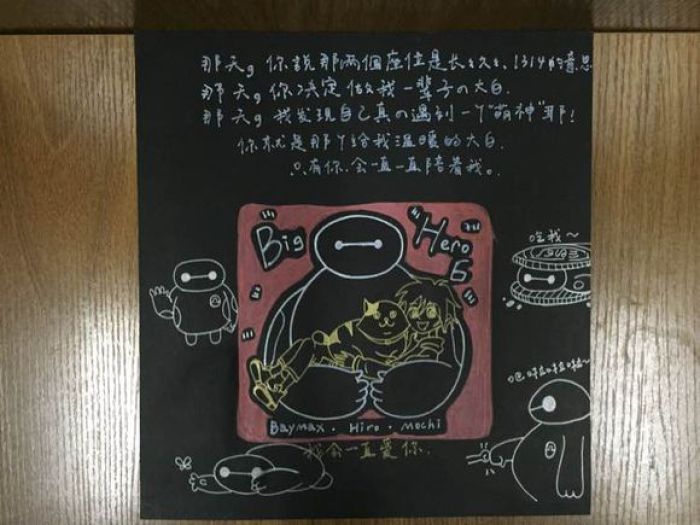 那天，你說那兩個座位是长长久久、1314的意思
那天，你决定做我一辈子の大白.
那天，我发现自己真の遇到一个"萌神"耶!
你就是那个给我温暖的大白.
只有你.会一直一直陪着我。
Big
Hero
6
吃我~
吧啦啦啦啦~
Baymax · Hiro · mochi
我会一直爱你.